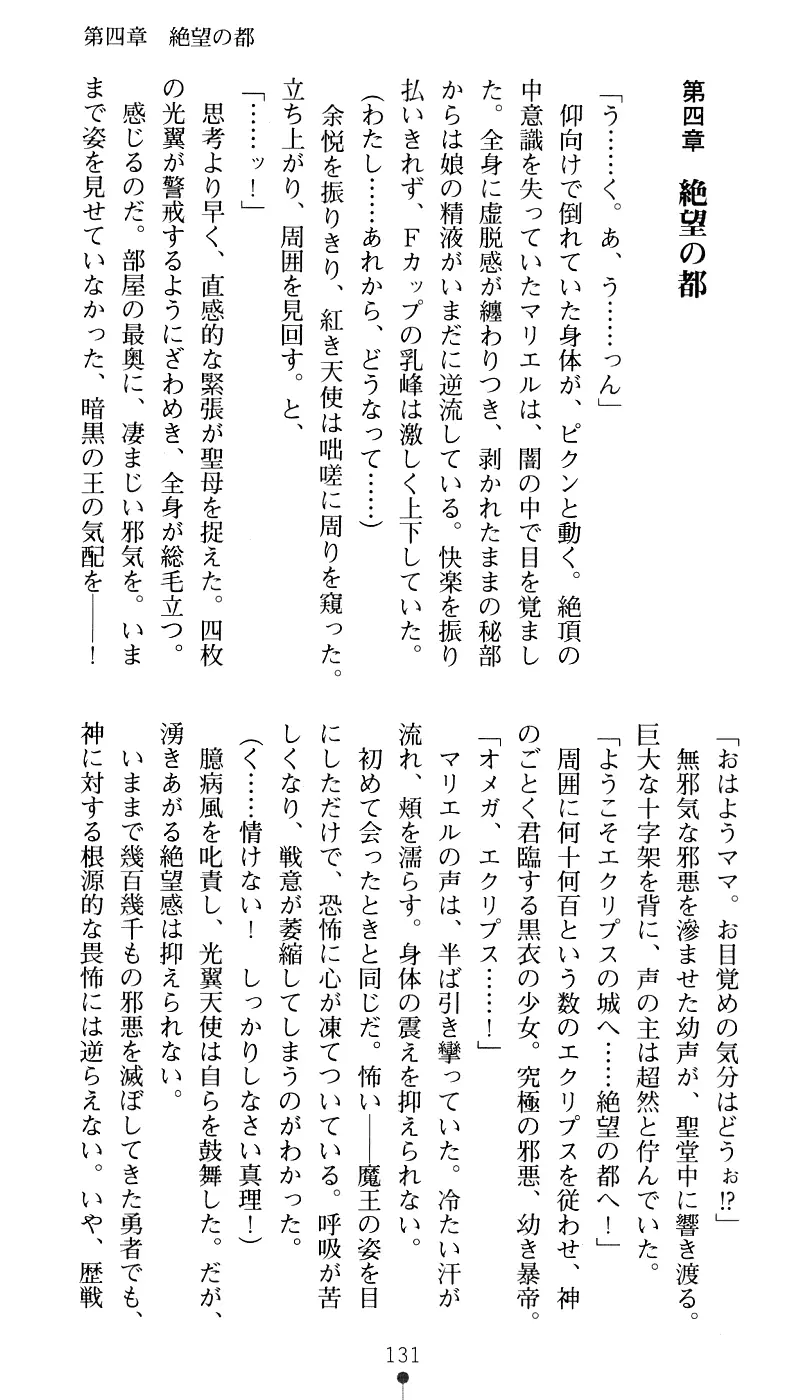 第四章　絶望の都
第四章　絶望の都
「う……く。あ、う……っん」
　仰向けで倒れていた身体が、ピクンと動く。絶頂の
中意識を失っていたマリエルは、闇の中で目を覚まし
た。全身に虚脱感が纏わりつき、剥かれたままの秘部
からは娘の精液がいまだに逆流している。快楽を振り
払いきれず、Ｆカップの乳峰は激しく上下していた。
（わたし……あれから、どうなって……）
　余悦を振りきり、紅き天使は咄嗟に周りを窺った。
立ち上がり、周囲を見回す。と、
「……ッ！」
　思考より早く、直感的な緊張が聖母を捉えた。四枚
の光翼が警戒するようにざわめき、全身が総毛立つ。
　感じるのだ。部屋の最奥に、凄まじい邪気を。いま
まで姿を見せていなかった、暗黒の王の気配を――！
「おはようママ。お目覚めの気分はどうぉ!?」
　無邪気な邪悪を滲ませた幼声が、聖堂中に響き渡る。
巨大な十字架を背に、声の主は超然と佇んでいた。
「ようこそエクリプスの城へ……絶望の都へ！」
　周囲に何十何百という数のエクリプスを従わせ、神
のごとく君臨する黒衣の少女。究極の邪悪、幼き暴帝。
「オメガ、エクリプス……！」
　マリエルの声は、半ば引き攣っていた。冷たい汗が
流れ、頬を濡らす。身体の震えを抑えられない。
　初めて会ったときと同じだ。怖い――魔王の姿を目
にしただけで、恐怖に心が凍てついている。呼吸が苦
しくなり、戦意が萎縮してしまうのがわかった。
（く……情けない！　しっかりしなさい真理！）
　臆病風を叱責し、光翼天使は自らを鼓舞した。だが、
湧きあがる絶望感は抑えられない。
　いままで幾百幾千もの邪悪を滅ぼしてきた勇者でも、
神に対する根源的な畏怖には逆らえない。いや、歴戦
131